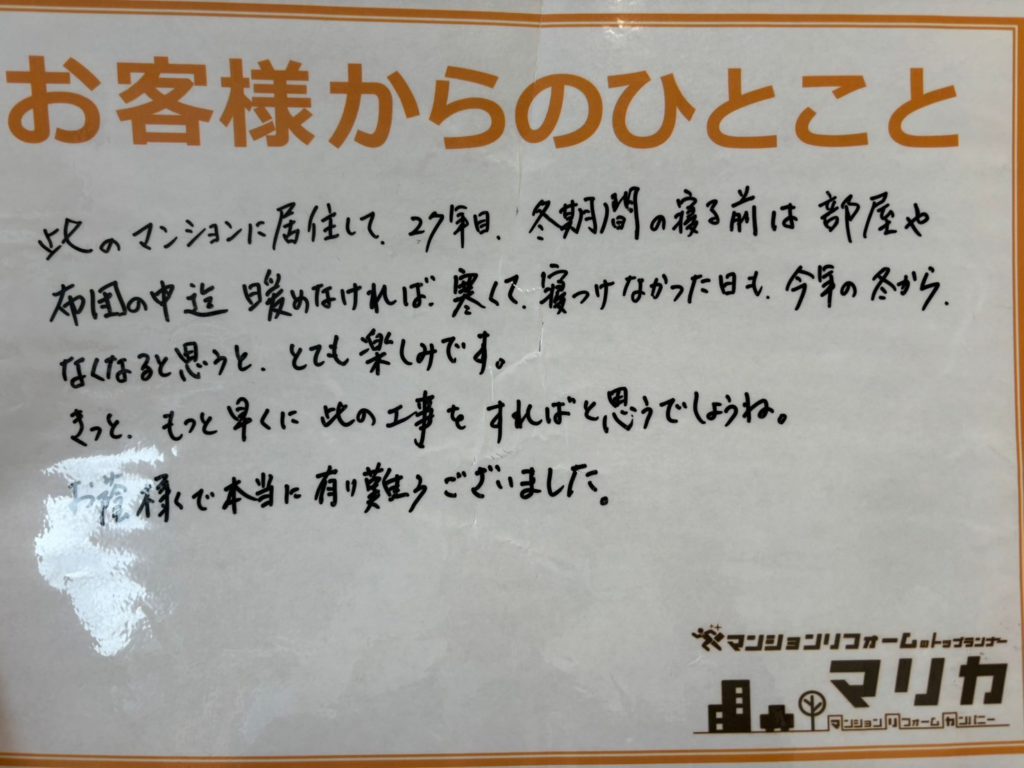 お客様からのひとこと
此のマンションに居住して、27年目、冬期間の寝る前は部屋や
布団の中迄暖めなければ、寒くて、寝つけなかった日も、今年の冬から、
なくなると思うと、とても楽しみです。
きっと、もっと早くに此の工事をすればと思うでしょうね。
お蔭様で本当に有り難うございました。
マンションリフォームのトップランナー
マリカ
マンションリフォームカンパニー